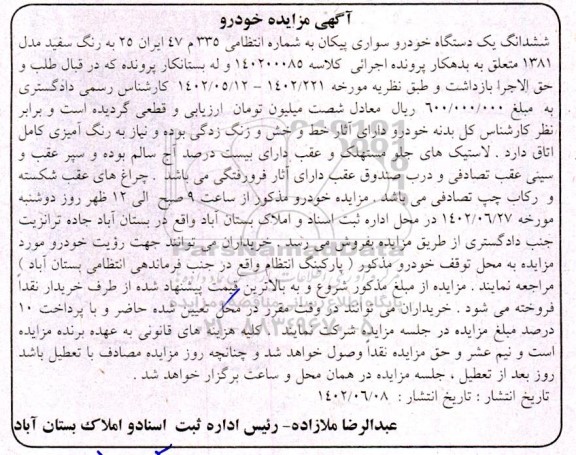 آگهی مزایده خودرو
ششدانگ یک دستگاه خودرو سواری پیکان به شماره انتظامی ۳۳۵ م ۴۷ ایران ۲۵ به رنگ سفید مدل
۱۳۸۱ متعلق به بدهکار پرونده اجرائی کلاسه ۱۴۰۲۰۰۰۸۵ و له بستانکار پرونده که در قبال طلب و
حق الاجرا بازداشت و طبق نظریه مورخه ۱۴۰۲/۲۲۱ – ۱۴۰۲/۰۵/۱۲ کارشناس رسمی دادگستری
به مبلغ ۶۰۰/۰۰۰/۰۰۰ ریال معادل شصت میلیون تومان ارزیابی و قطعی گردیده است و برابر
نظر کارشناس کل بدنه خودرو دارای آثار خط و خش و زنگ زدگی بوده و نیاز به رنگ آمیزی کامل
اتاق دارد . لاستیک های جلو مستهلک و عقب دارای بیست درصد آج سالم بوده و سپر عقب و
سینی عقب تصادفی و درب صندوق عقب دارای آثار فرورفتگی می باشد . چراغ های عقب شکسته
و رکاب چپ تصادفی می باشد . مزایده خودرو مذکور از ساعت ۹ صبح الی ۱۲ ظهر روز دوشنبه
مورخه ۱۴۰۲/۰۶/۲۷ در محل اداره ثبت اسناد و املاک بستان آباد واقع در بستان آباد جاده ترانزیت
جنب دادگستری از طریق مزایده بفروش می رسد . خریداران می توانند جهت رؤیت خودرو مورد
مزایده به محل توقف خودرو مذکور ( پارکینگ انتظام واقع در جنب فرماندهی انتظامی بستان آباد )
مراجعه نمایند . مزایده از مبلغ مذکور شروع و به بالاترین قیمت پیشنهاد شده از طرف خریدار نقداً
فروخته می شود . خریداران می توانند در وقت مقرر در محل تعیین شده حاضر و با پرداخت ۱۰
درصد مبلغ مزایده در جلسه مزایده شرکت نمایند . کلیه هزینه های قانونی به عهده برنده مزایده
است و نیم عشر و حق مزایده نقداً وصول خواهد شد و چنانچه روز مزایده مصادف با تعطیل باشد
روز بعد از تعطیل ، جلسه مزایده در همان محل و ساعت برگزار خواهد شد .
تاریخ انتشار : تاریخ انتشار : ۱۴۰۲/۰۶/۰۸
عبدالرضا ملازاده- رئیس اداره ثبت اسنادو املاک بستان آباد